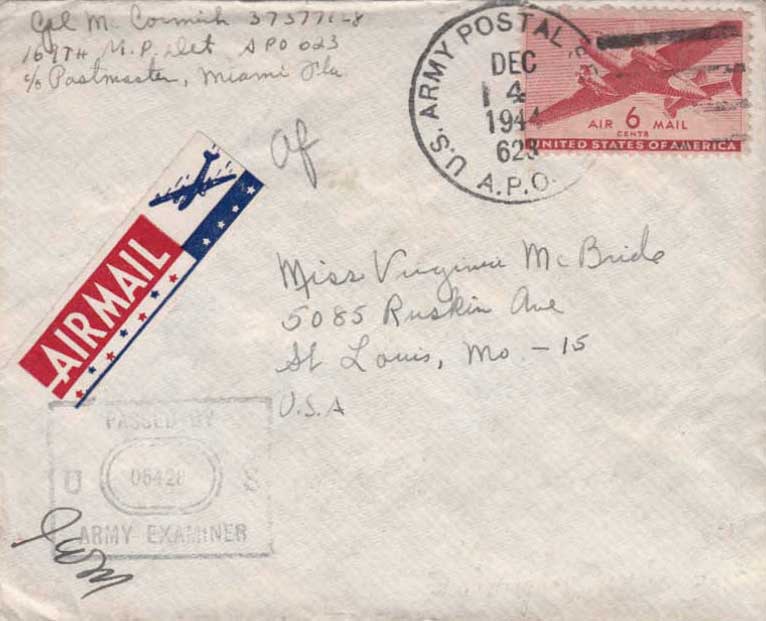 Cpl Mc Cormick 373771-8
169TH M.P. Det APO 623
c/o Postmaster, Miami Fla
U.S. ARMY POSTAL
DEC
4
1944
623
A.P.O.
AIR 6 MAIL
CENTS
UNITED STATES OF AMERICA
af
AIRMAIL
Miss Virginia McBride
5085 Ruskin Ave
St Louis, Mo. - 15
U.S.A
PASSED BY
U 06428 S
ARMY EXAMINER